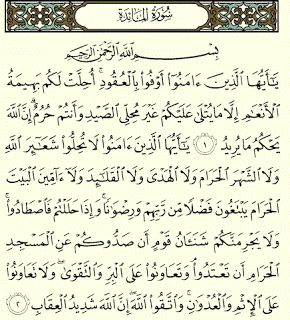 سُورَةُ المَائِدَة
بِسْمِ اللَّهِ الرَّحْمَٰنِ الرَّحِيمِ
يَٰٓأَيُّهَا الَّذِينَ ءَامَنُوٓا۟ أَوْفُوا۟ بِالْعُقُودِ ۚ أُحِلَّتْ لَكُم بَهِيمَةُ
الْأَنْعَٰمِ إِلَّا مَا يُتْلَىٰ عَلَيْكُمْ غَيْرَ مُحِلِّى الصَّيْدِ وَأَنتُمْ حُرُمٌ ۗ إِنَّ اللَّهَ
يَحْكُمُ مَا يُرِيدُ ١ يَٰٓأَيُّهَا الَّذِينَ ءَامَنُوا۟ لَا تُحِلُّوا۟ شَعَٰٓئِرَ اللَّهِ
وَلَا الشَّهْرَ الْحَرَامَ وَلَا الْهَدْىَ وَلَا الْقَلَٰٓئِدَ وَلَآ ءَآمِّينَ الْبَيْتَ
الْحَرَامَ يَبْتَغُونَ فَضْلًا مِّن رَّبِّهِمْ وَرِضْوَٰنًا ۚ وَإِذَا حَلَلْتُمْ فَاصْطَادُوا۟ ۚ
وَلَا يَجْرِمَنَّكُمْ شَنَـَٔانُ قَوْمٍ أَن صَدُّوكُمْ عَنِ الْمَسْجِدِ
الْحَرَامِ أَن تَعْتَدُوا۟ ۘ وَتَعَاوَنُوا۟ عَلَى الْبِرِّ وَالتَّقْوَىٰ ۖ وَلَا تَعَاوَنُوا۟
عَلَى الْإِثْمِ وَالْعُدْوَٰنِ ۚ وَاتَّقُوا۟ اللَّهَ ۖ إِنَّ اللَّهَ شَدِيدُ الْعِقَابِ ٢